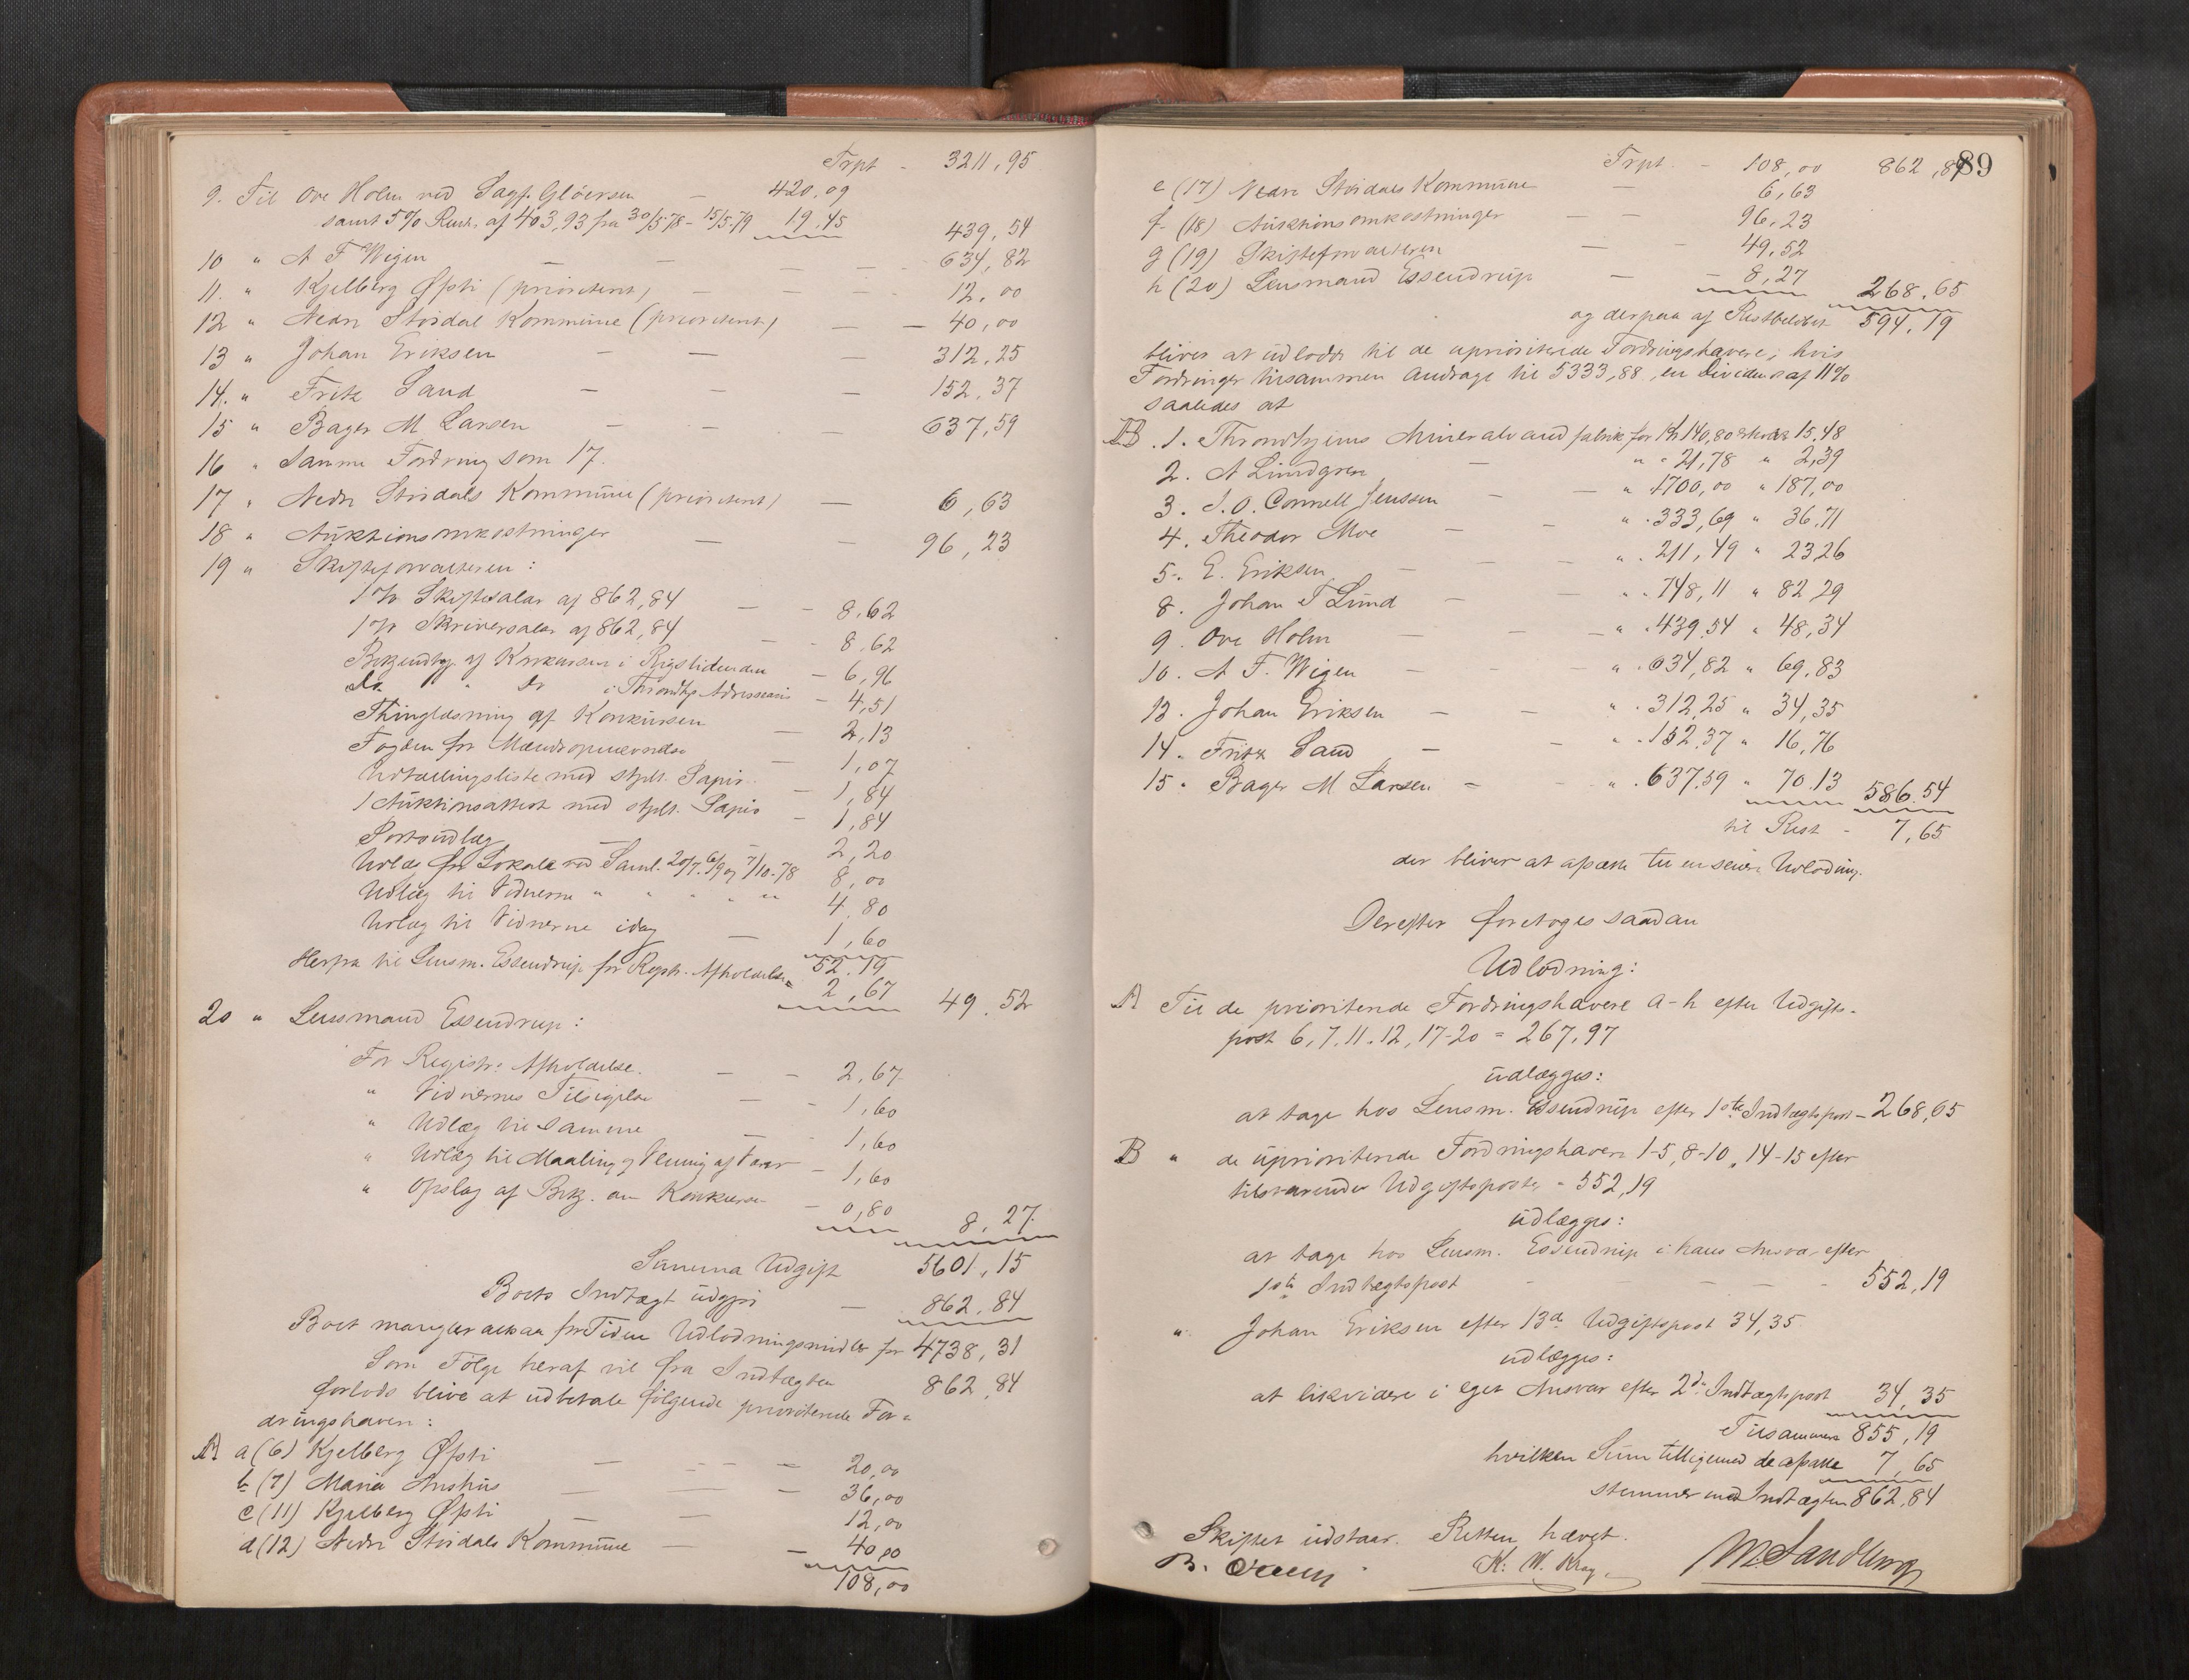 Trpt - 3211,95
9. Til Ove Holm ved Sagf. Gløersen - 420,09
samt 5% Rent. af 403,93 fra 30/5 78 - 15/5 79 19,45 439,54
10 " A F Wigen - - - - 634,82
11. " Kjelberg Øfsti (prioriteret) - - - 12,00
12 " Nedre Størdal Kommune (prioriteret) - - 40,00
13 " Johan Eriksen - - - 312,25
14. " Fritz Sand - - - 152,37
15 " Bager M Larsen - - - 637,59
16 " Samme Fordring som 17.
17 " Nedre Størdals Kommune (prioriteret) - 6,63
18 " Auktionsomkostninger - - 96,23
19 " Skifteforvalteren:
1% Skiftesalar af 862,84 - - 8,62
1% Skriversalar af 862,84 - 8,62
Bekjendtg. af Konkursen i Rigstidenden - 6,96
Do " " Do i Throndhj. Adresseavis - 4,51
Thinglæsning af Konkursen - 2,13
Fogden for Mændsopnævnelse - 1,07
Udtællingsliste med stplt. Papir - 1,84
1 Auktionsattest med stplt. Papir - 1,84
Portoudlæg - 2,20
Udlæg for Lokale ved Saml. 20/7. 6/9 og 7/10-78 8,00
Udlæg til Vidnerne " " " " 4,80
Udlæg til Vidnerne idag - 1,60
52,19
Herfra til Lensm. Essendrup for Regstr. Afholdelse 2,67 49,52
20 " Lensmand Essendrup:
For Registr: Afholdelse. - - 2,67
" Vidnernes Tilsigelse - - 1,60
" Udlæg til samme - - 1,60
" Udlæg til Maaling og Veining af Varer - 1,60
" Opslag af Bekj. om Konkurse - 0,80 8,27
Summa Udgift 5601,15
Boets Indtægt udgjør - 862,84
Boet mangler altsaa for Tiden Udlodningsmidler for 4738,31
Som Følge heraf vil fra Indtægten 862,84
forlods blive at udbetale følgende prioriterede For-
dringshavere:
A a (6) Kjelberg Øfsti - - - 20,00
b (7) Maria Aushus - - - 36,00
c (11) Kjelberg Øfsti - - 12,00
d (12) Nedre Størdals Kommune - - 40,00
108,00
89
Trpt. - 108,00 862,84
e (17) Nedre Størdals Kommune - 6,63
f (18) Auktionsomkostninger - - 96,23
g (19) Skifteforvalteren - - 49,52
h (20) Lensmand Essendrup - - 8,27 268,65
og derpaa af Restbeløbet 594,19
bliver at udlodde til de uprioriterede Fordringshavere, hvis
Fordringer tilsammen andrage til 5333,88, en Dividende af 11%
saaledes at
B. 1. Throndhjems Mineralvandfabrik for Kr 140,80 erholder 15,48
2. A Lundgren - " " 21,78 " 2,39
3. J. O. Connell Jenssen - - " 1700,00 " 187,00
4. Theodor Moe - - " . 333,69 " 36,71
5. E. Eriksen - - - " . 211,49 " 23,26
8. Johan T Lund - - " . 748,11 " 82,29
9. Ove Holm - - - " . 439,54 " 48,34
10. A F. Wigen - - - " . 634,82 " 69,83
13. Johan Eriksen - - " . 312,25 " 34,35
14. Fritz Sand - - " . 152,37 " 16,76
15. Bager M Larsen - - " . 637,59 " 70,13 586,54
til Rest - 7,65
der bliver at afsætte til en senere Udlodning.
Derefter foretoges saadan
Udlodning:
A Til de prioriterede Fordringshavere a-h efter Udgifts-
post 6, 7. 11. 12, 17-20 = 267,97
udlægges:
at tage hos Lensm. Essendrup efter 1ste Indtægtspost - 268,65
B " de uprioriterede Fordringshavere 1-5, 8-10, 14-15 efter
tilsvarende Udgiftsposter = 552,19
udlægges:
at tage hos Lensm. Essendrup i hans Ansvar efter
1ste Indtægtspost - - - - - 552,19
" Johan Eriksen efter 13de Udgiftspost 34,35
udlægges:
at likvidere i eget Ansvar efter 2den Indtægtspost 34,35
Tilsammen 855,19
hvilken Sum tilligemed de afsatte 7,65
stemmer med Indtægten 862,84
Skiftet udstaar. Retten hævet.
K. W. Krog. M. Sandberg